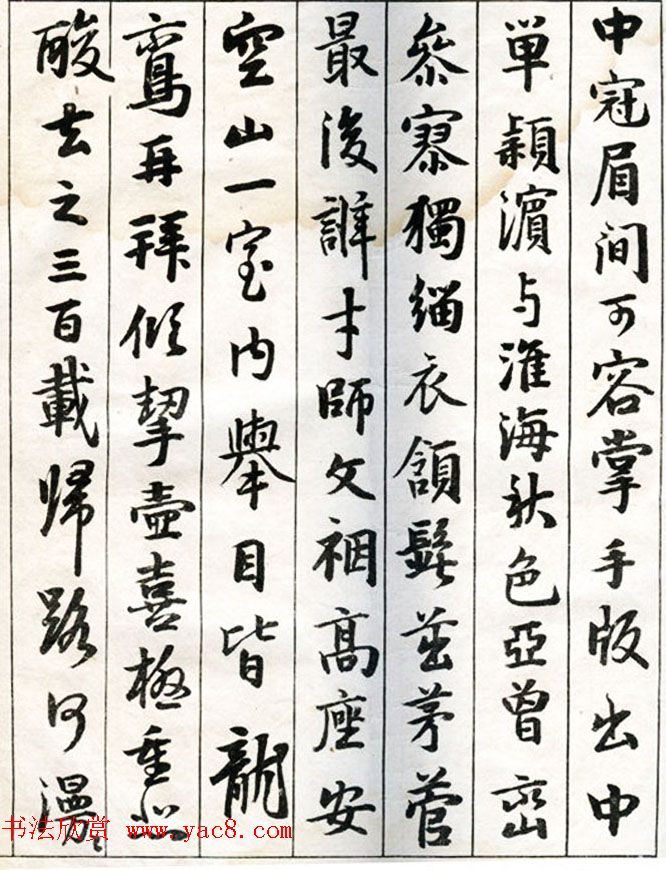 中冠眉间可容掌手版出中
單穎濱与淮海秋色亞曾巒
叅寥獨緇衣頷髭茁茅菅
最後誰才師文裀高座安
空山一室内舉目皆龍
鸞再拜修挈壺喜極重悲
酸去之三百載歸路何漫〻
书法欣赏 www.yac8.com